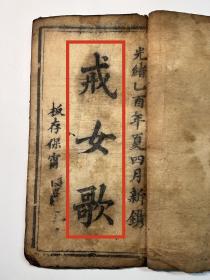 光緒乙酉年夏四月新鐫
戒女歌
板存保甯